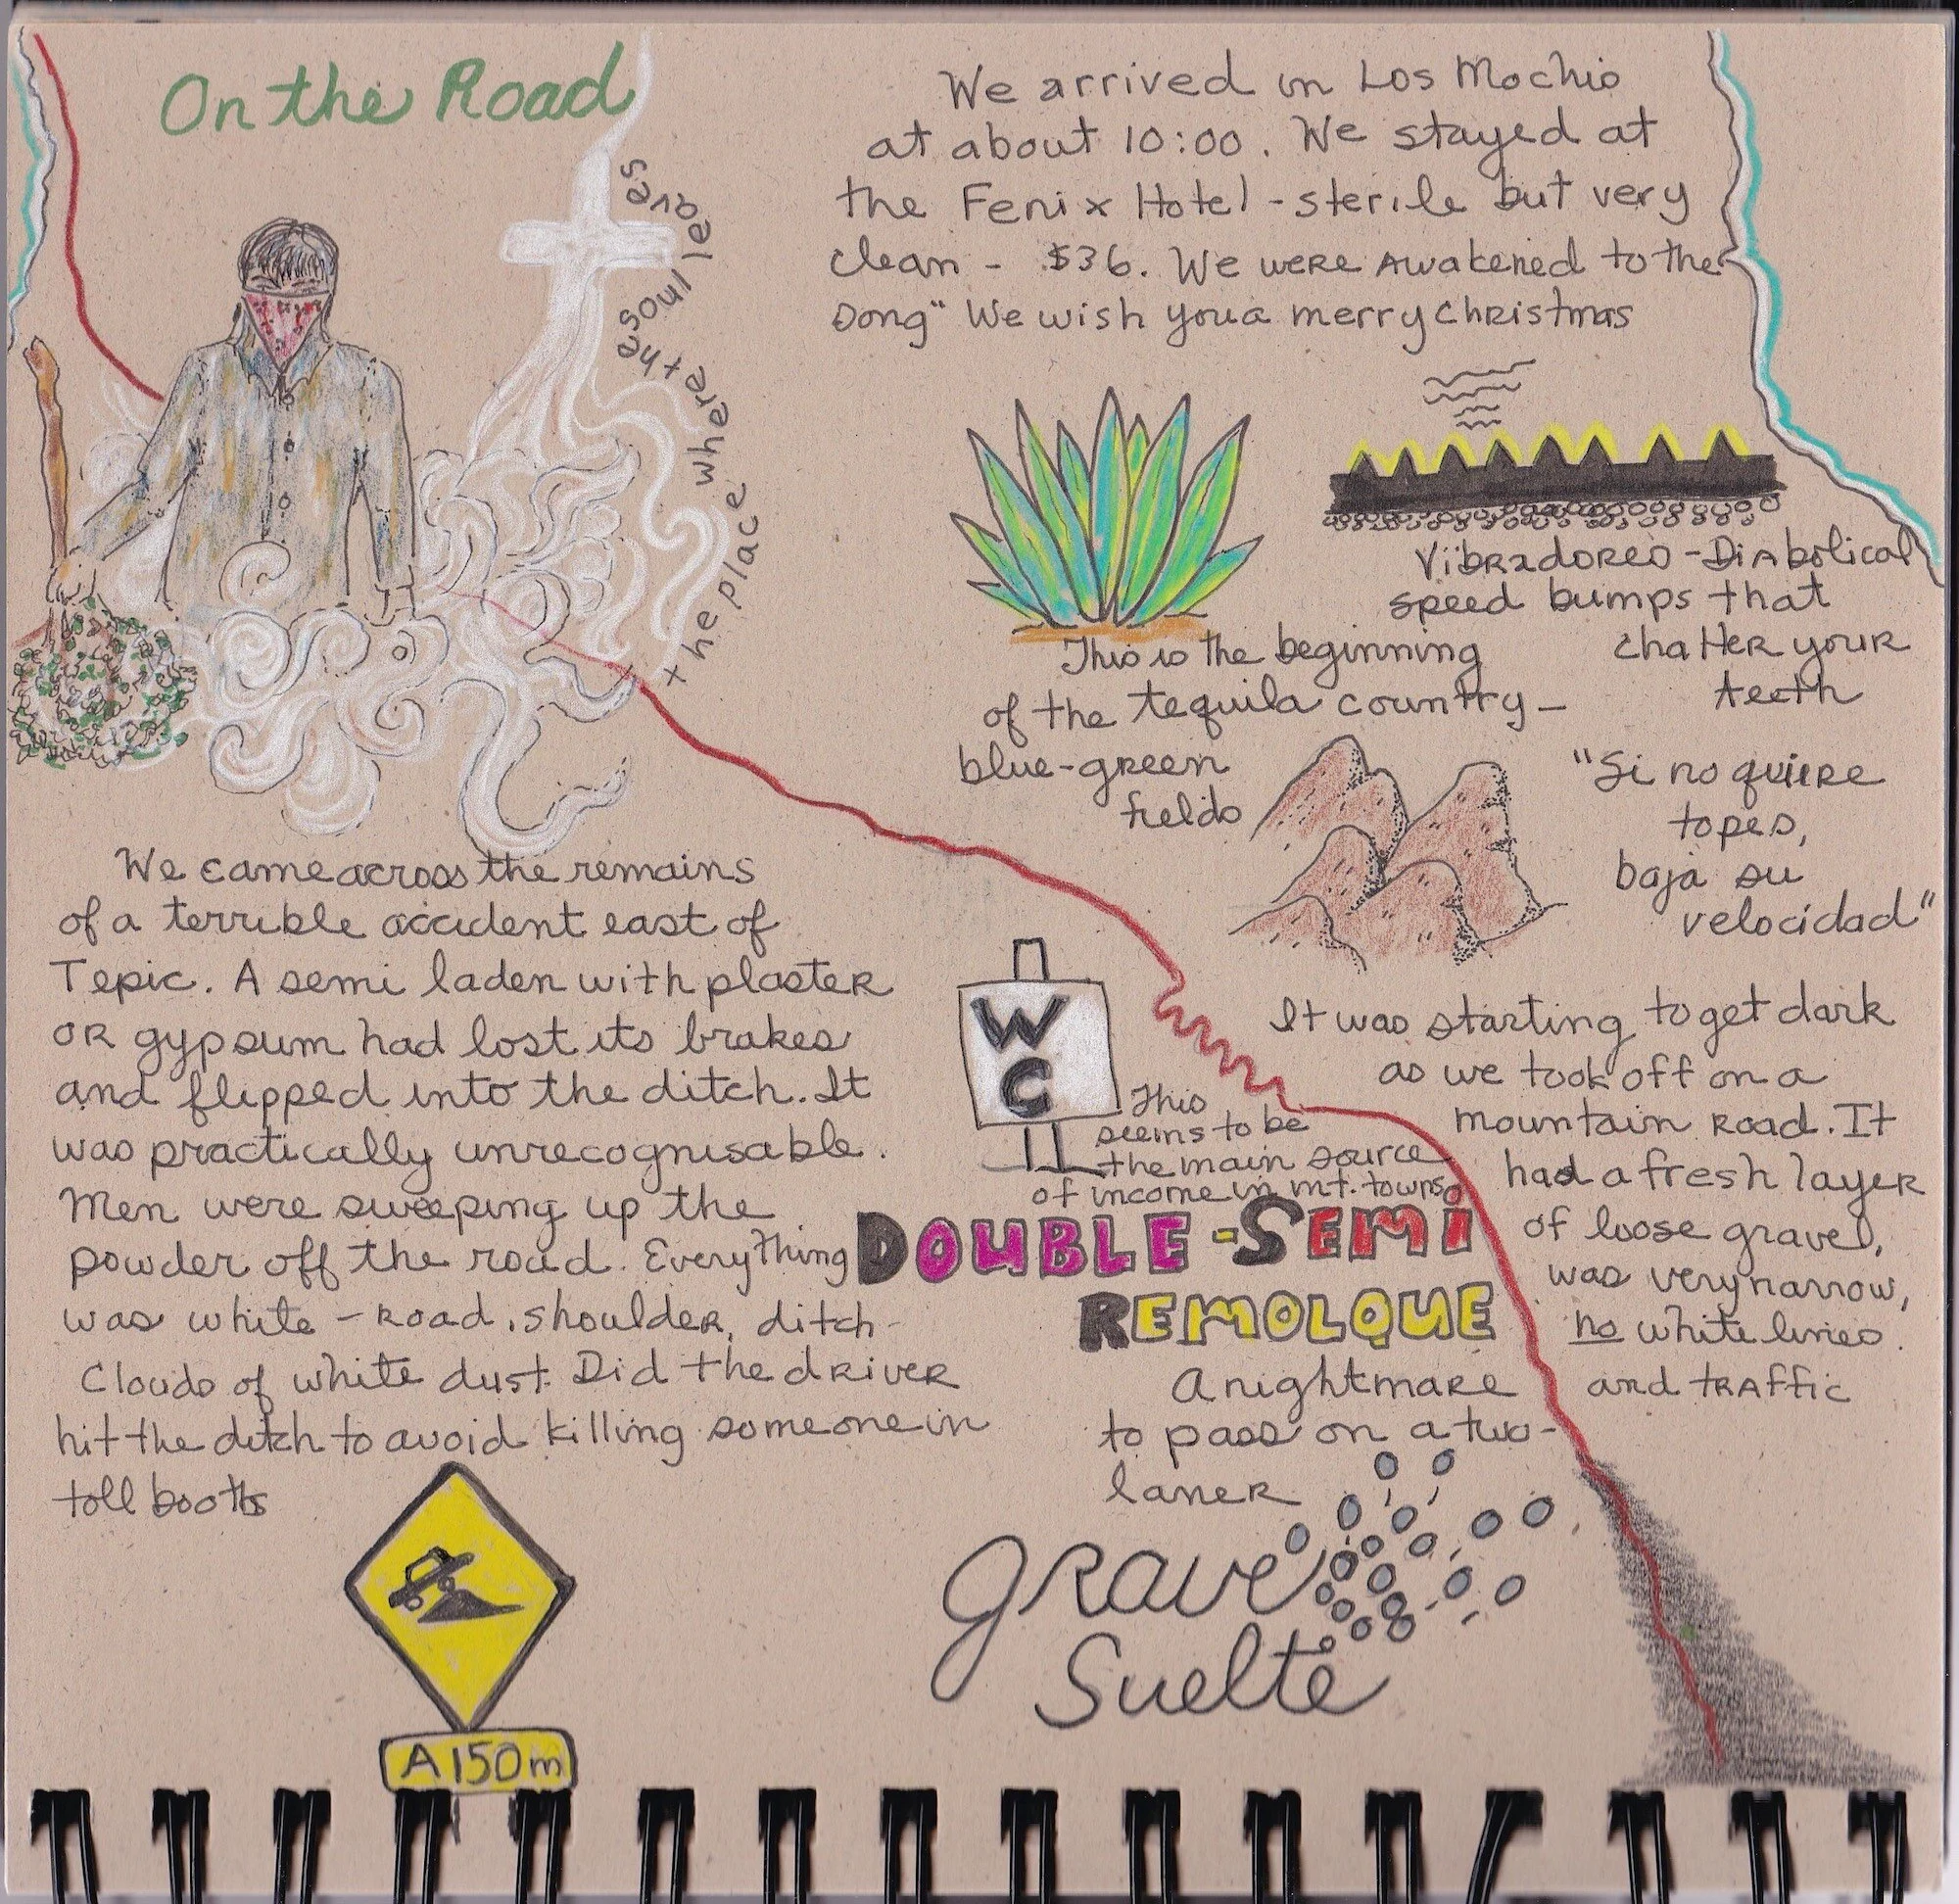 On the Road
the place where the soul leaves
We arrived in Los Mochis
at about 10:00. We stayed at
the Fenix Hotel - sterile but very
clean - $36. We were awakened to the
song "We wish you a merry Christmas
Vibradores - Diabolical
speed bumps that
chatter your
teeth
This is the beginning
of the tequila country -
blue-green
fields
"Si no quiere
topes,
baja su
velocidad"
We came across the remains
of a terrible accident east of
Tepic. A semi laden with plaster
or gypsum had lost its brakes
and flipped into the ditch. It
was practically unrecognisable.
Men were sweeping up the
powder off the road. Everything
was white - road, shoulder, ditch -
Clouds of white dust. Did the driver
hit the ditch to avoid killing someone in
toll booths
A 150 m
W
C
This
seems to be
the main source
of income in mt. towns
DOUBLE-SEMI
REMOLQUE
A nightmare
to pass on a two-
laner
Grave
Suelte
It was starting to get dark
as we took off on a
mountain road. It
had a fresh layer
of loose gravel,
was very narrow,
no white lines.
and traffic